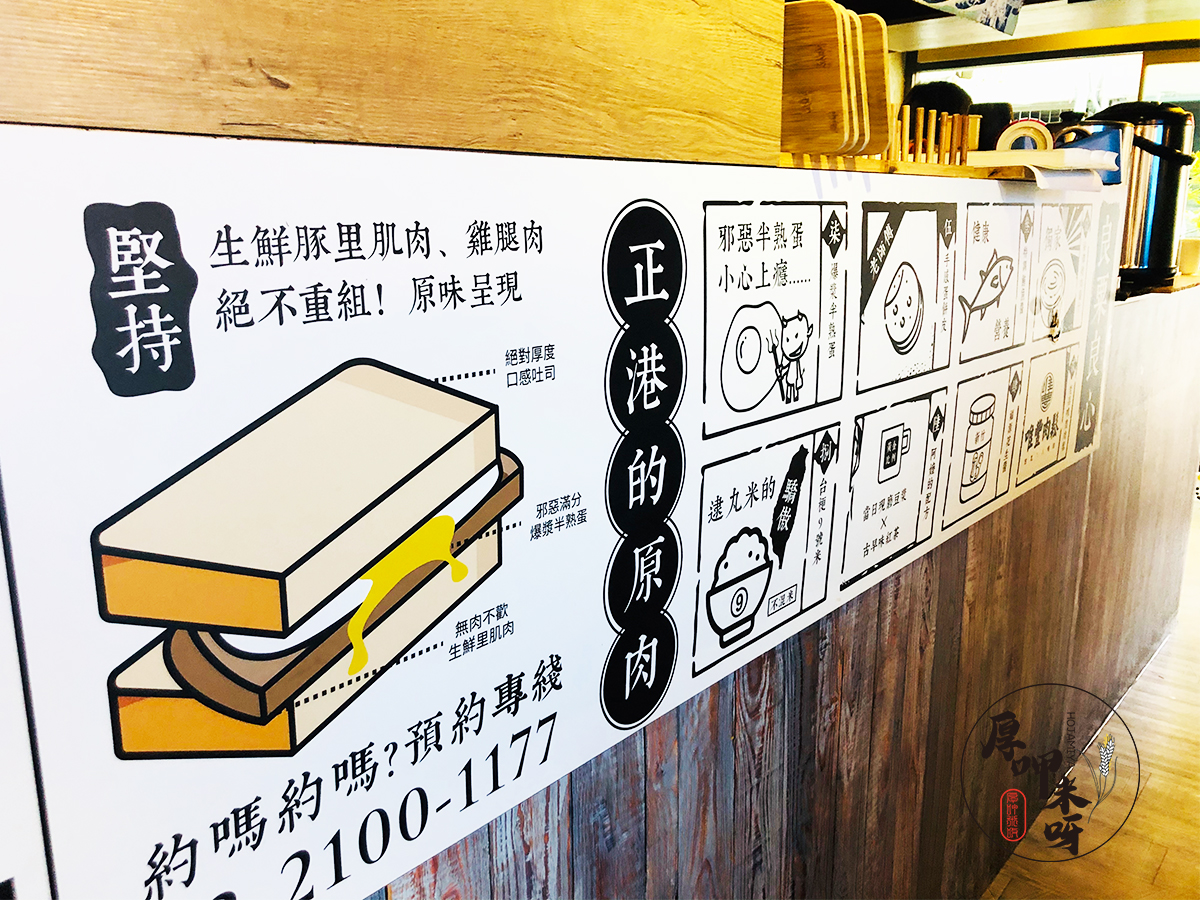 堅持
生鮮豚里肌肉、雞腿肉
絕不重組!原味呈現
絕對厚度
口感吐司
邪惡滿分
爆漿半熟蛋
無肉不歡
生鮮里肌肉
約嗎約嗎?預約專綫
2100-1177
正港的原肉
邪惡半熟蛋
小心上癮......
柒
爆漿半熟蛋
老師傅
伍
手感蛋餅皮
健康
營養
獨家
逮丸米的
驕傲
9
不混米
捌
台梗9號米
當日現熬豆漿
×
古早味紅茶
陸
阿嬤的配方
唯豐肉鬆
良心
厚呷米呀